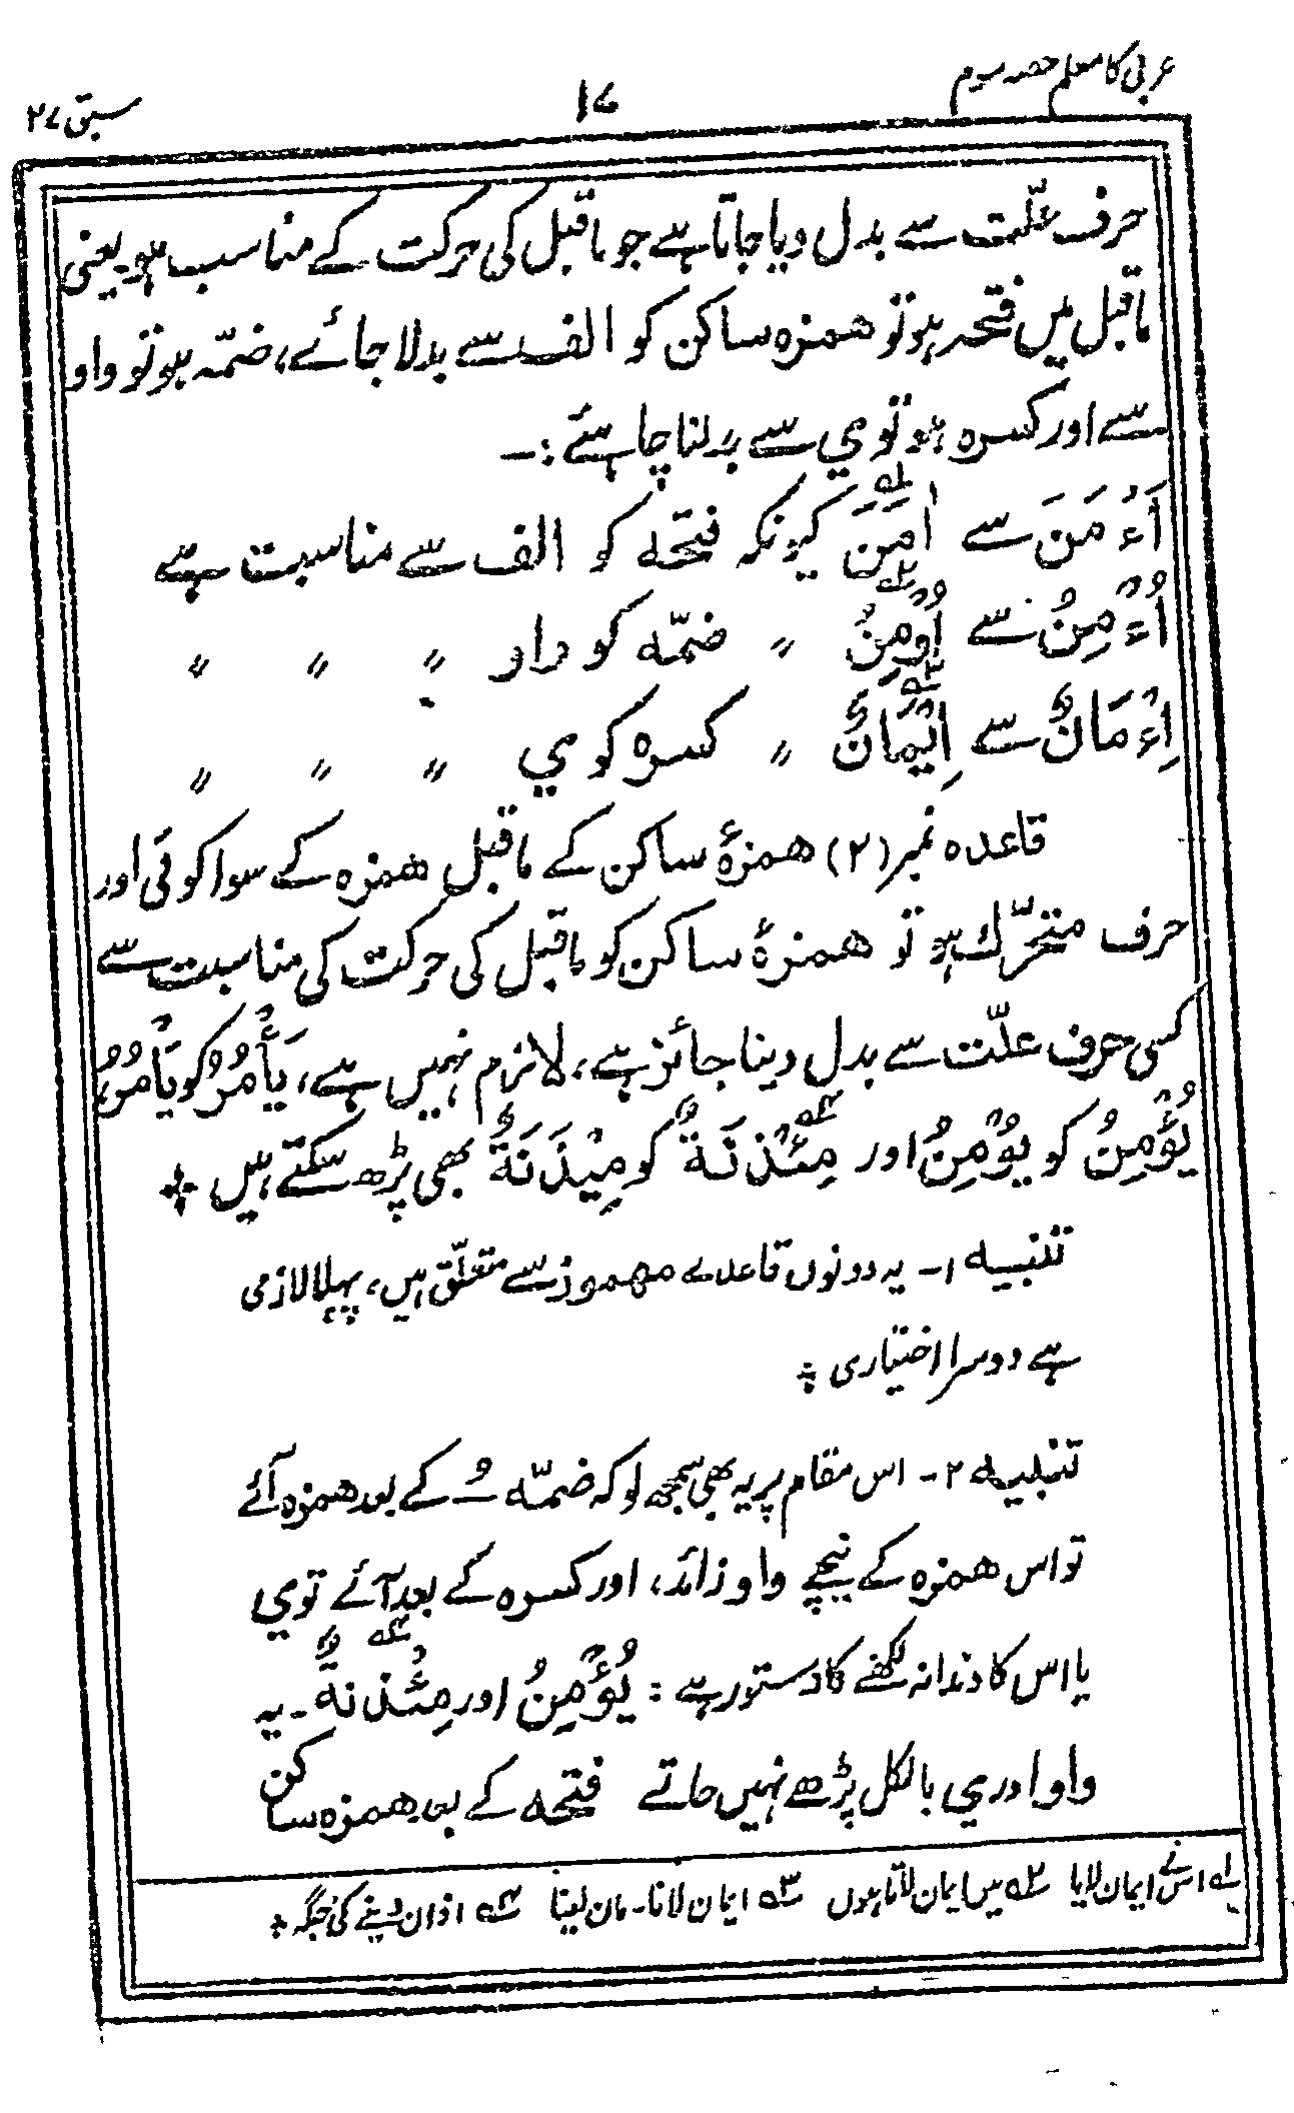 عربی کا معلم حصہ سوم
۱۷
سبق ۲۷
حرف علّت سے بدل دیا جاتا ہے جو ماقبل کی حرکت کے مناسب ہو۔ یعنی
ماقبل میں فتحہ ہو تو همزہ ساکن کو الف سے بدلا جائے، ضمّہ ہو تو واو
سے اور کسرہ ہو تو ي سے بدلنا چاہئے :ـ
أَءْمَنَ سے اٰمَنَ ؎۱ کیونکہ فتحہ کو الف سے مناسبت ہے
اُءْمِنُ سے اُوْمِنُ ؎۲ 〃 ضمّہ کو واو 〃 〃 〃
اِءْمَانٌ سے اِيْمَانٌ ؎۳ 〃 کسرہ کو ي 〃 〃 〃
قاعدہ نمبر (۲) همزۂ ساکن کے ماقبل همزہ کے سوا کوئی اور
حرف متحرّك ہو تو همزۂ ساکن کو ماقبل کی حرکت کی مناسبت سے
کسی حرف علّت سے بدل دینا جائز ہے، لازم نہیں ہے، يَأْمُرُ کو يَامُرُ،
يُؤْمِنُ کو يُوْمِنُ اور مِئْذَنَةٌ ؎۴ کو مِيْذَنَةٌ بھی پڑھ سکتے ہیں ٭
تنبیہ ۱ـ یہ دونوں قاعدے مهموز سے متعلّق ہیں، پہلا لازمی
ہے دوسرا اختیاری ٭
تنبیہ ۲ـ اس مقام پر یہ بھی سمجھ لو کہ ضمّہ ـُ کے بعد همزہ آئے
تو اس همزہ کے نیچے واو زائد، اور کسرہ کے بعد آئے تو ي
یا اس کا دندانہ لکھنے کا دستور ہے : يُؤْمِنُ اور مِئْذَنَةٌ ؎۴ ۔ یہ
واو اور ي بالکل پڑھے نہیں جاتے فتحہ کے بعد همزہ ساکن
؎۱ اس نے ایمان لایا ؎۲ میں ایمان لاتا ہوں ؎۳ ایمان لانا۔ مان لینا ؎۴ اذان دینے کی جگہ ٭